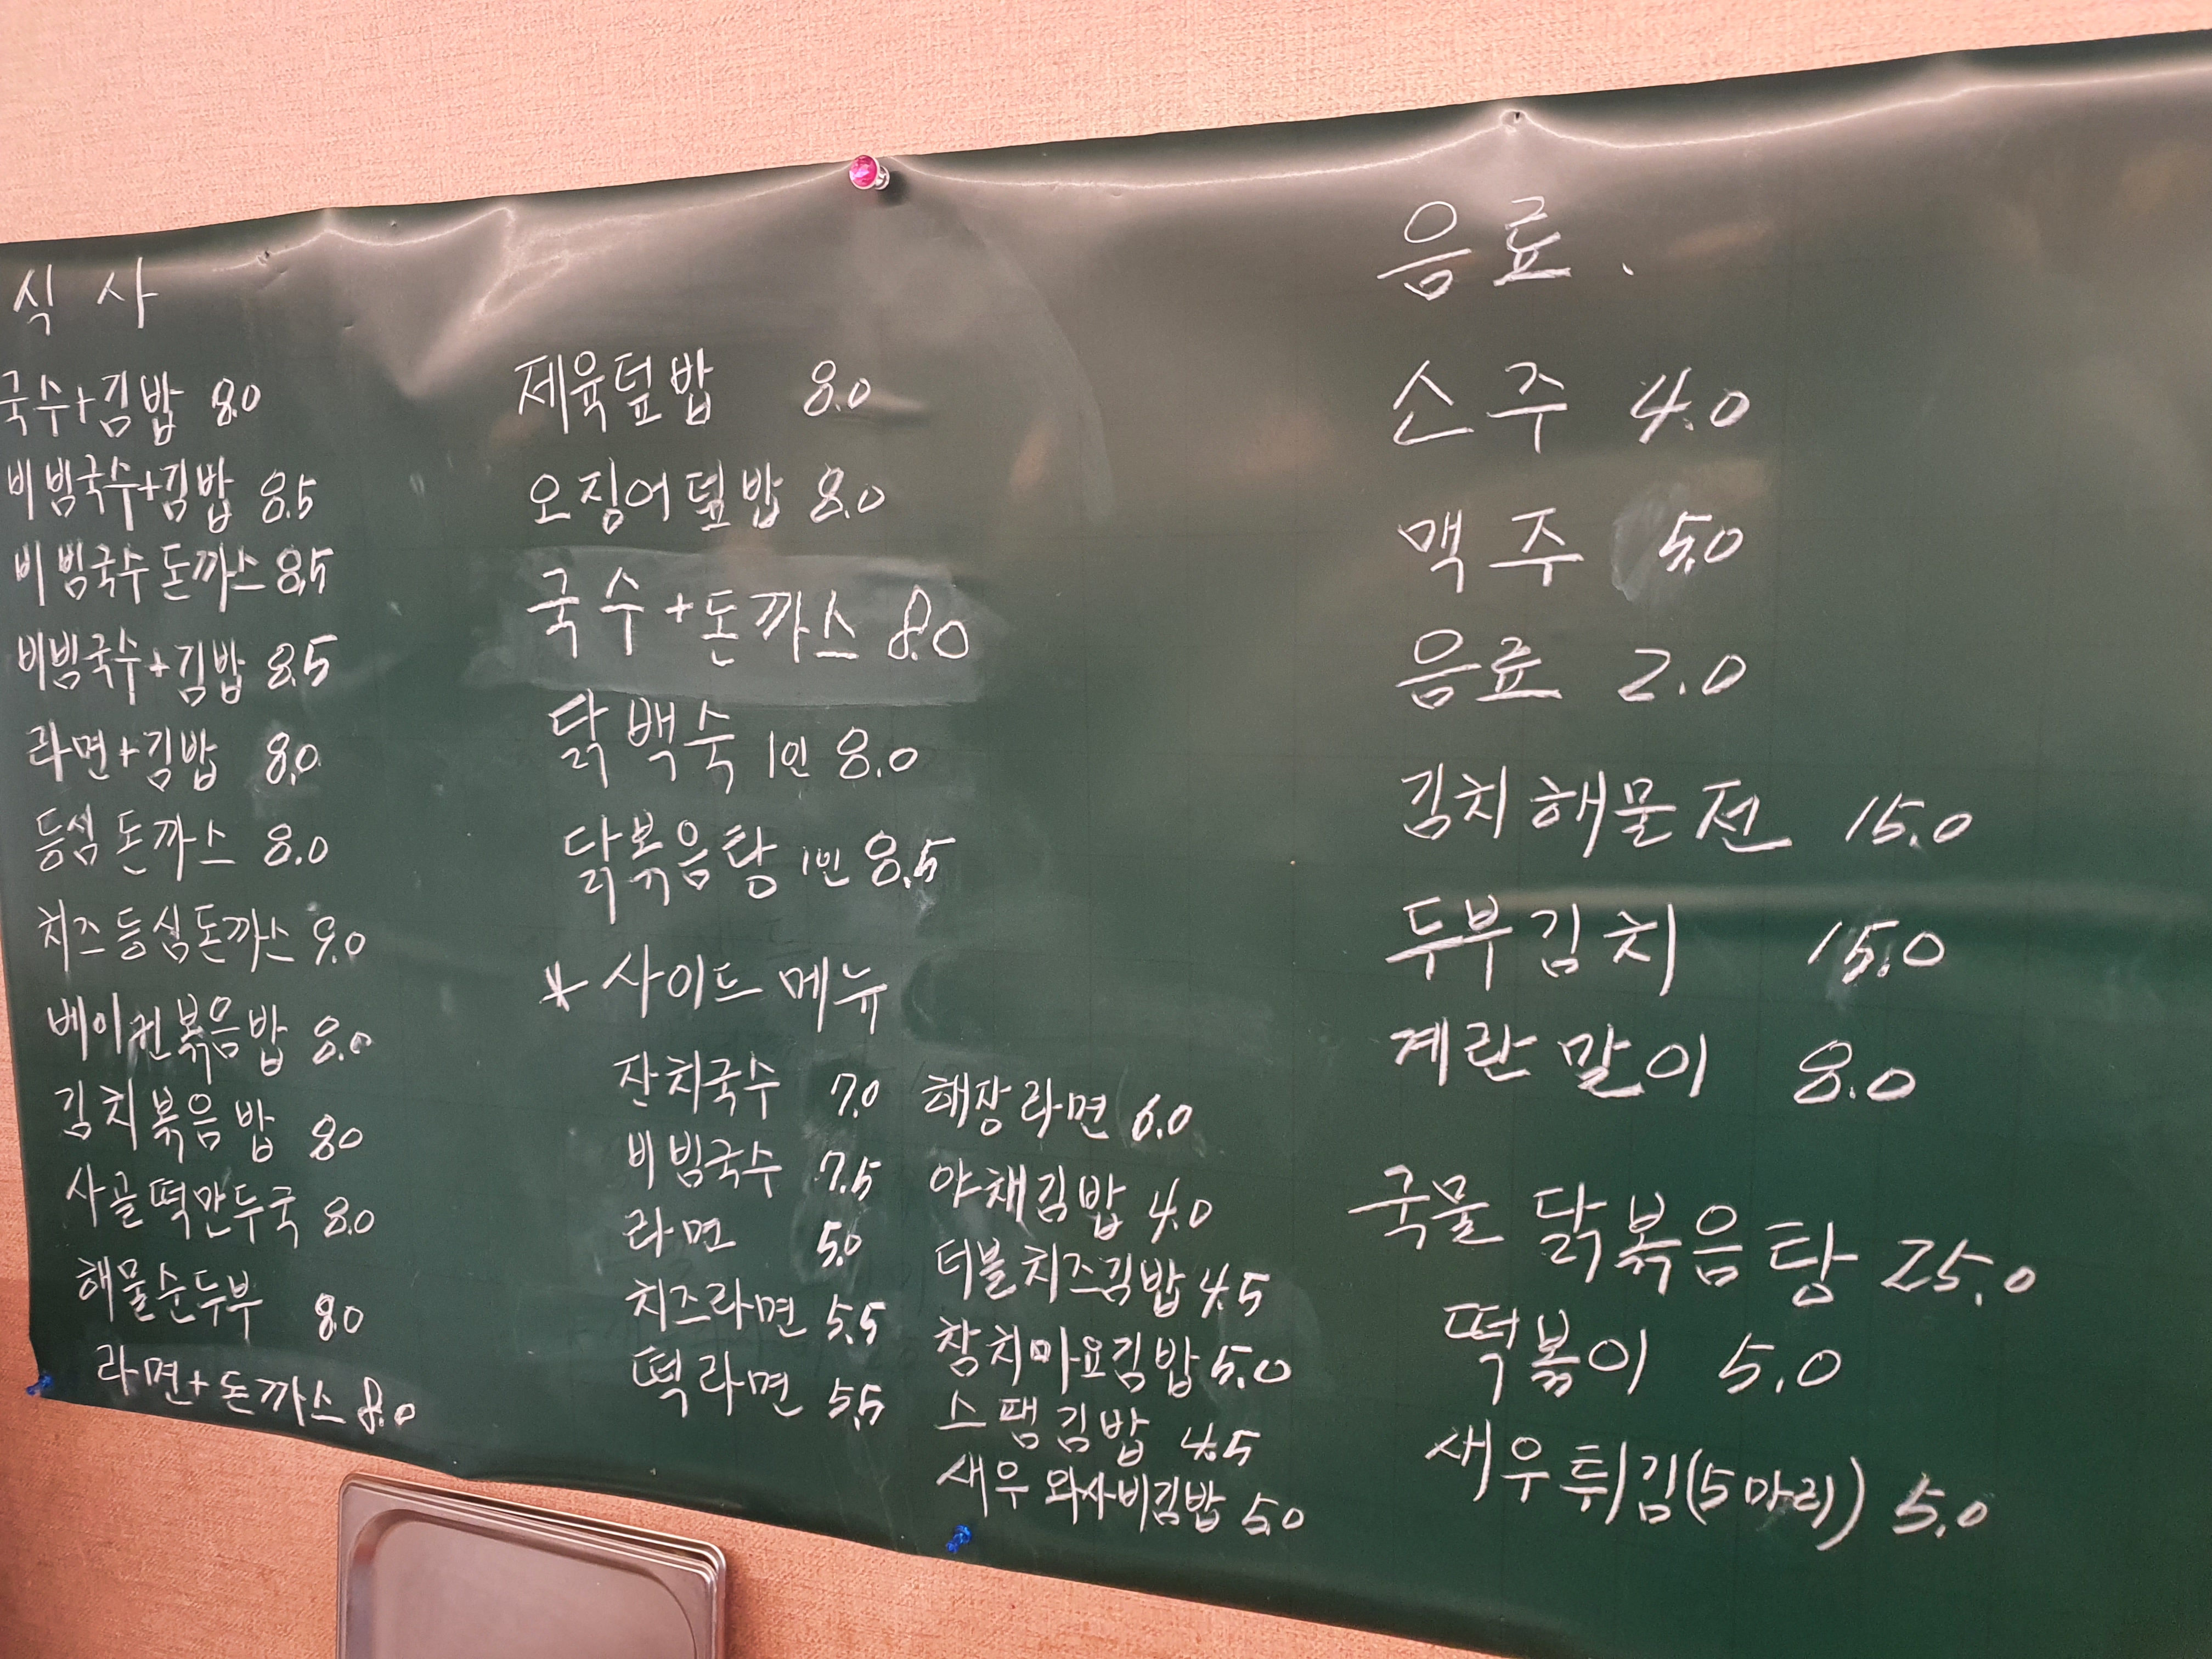 식사
국수+김밥 8.0
비빔국수+김밥 8.5
비빔국수 돈까스 8.5
비빔국수+김밥 8.5
라면+김밥 8.0
등심돈까스 8.0
치즈등심돈까스 9.0
베이컨볶음밥 8.0
김치볶음밥 8.0
사골떡만두국 8.0
해물순두부 8.0
라면+돈까스 8.0
제육덮밥 8.0
오징어덮밥 8.0
국수+돈까스 8.0
닭백숙 1인 8.0
닭볶음탕 1인 8.5
* 사이드 메뉴
잔치국수 7.0
비빔국수 7.5
라면 5.0
치즈라면 5.5
떡라면 5.5
해장라면 6.0
야채김밥 4.0
더블치즈김밥 4.5
참치마요김밥 5.0
스팸김밥 4.5
새우 와사비김밥 5.0
음료.
소주 4.0
맥주 5.0
음료 2.0
김치해물전 15.0
두부김치 15.0
계란말이 8.0
국물 닭볶음탕 25.0
떡볶이 5.0
새우튀김(5마리) 5.0